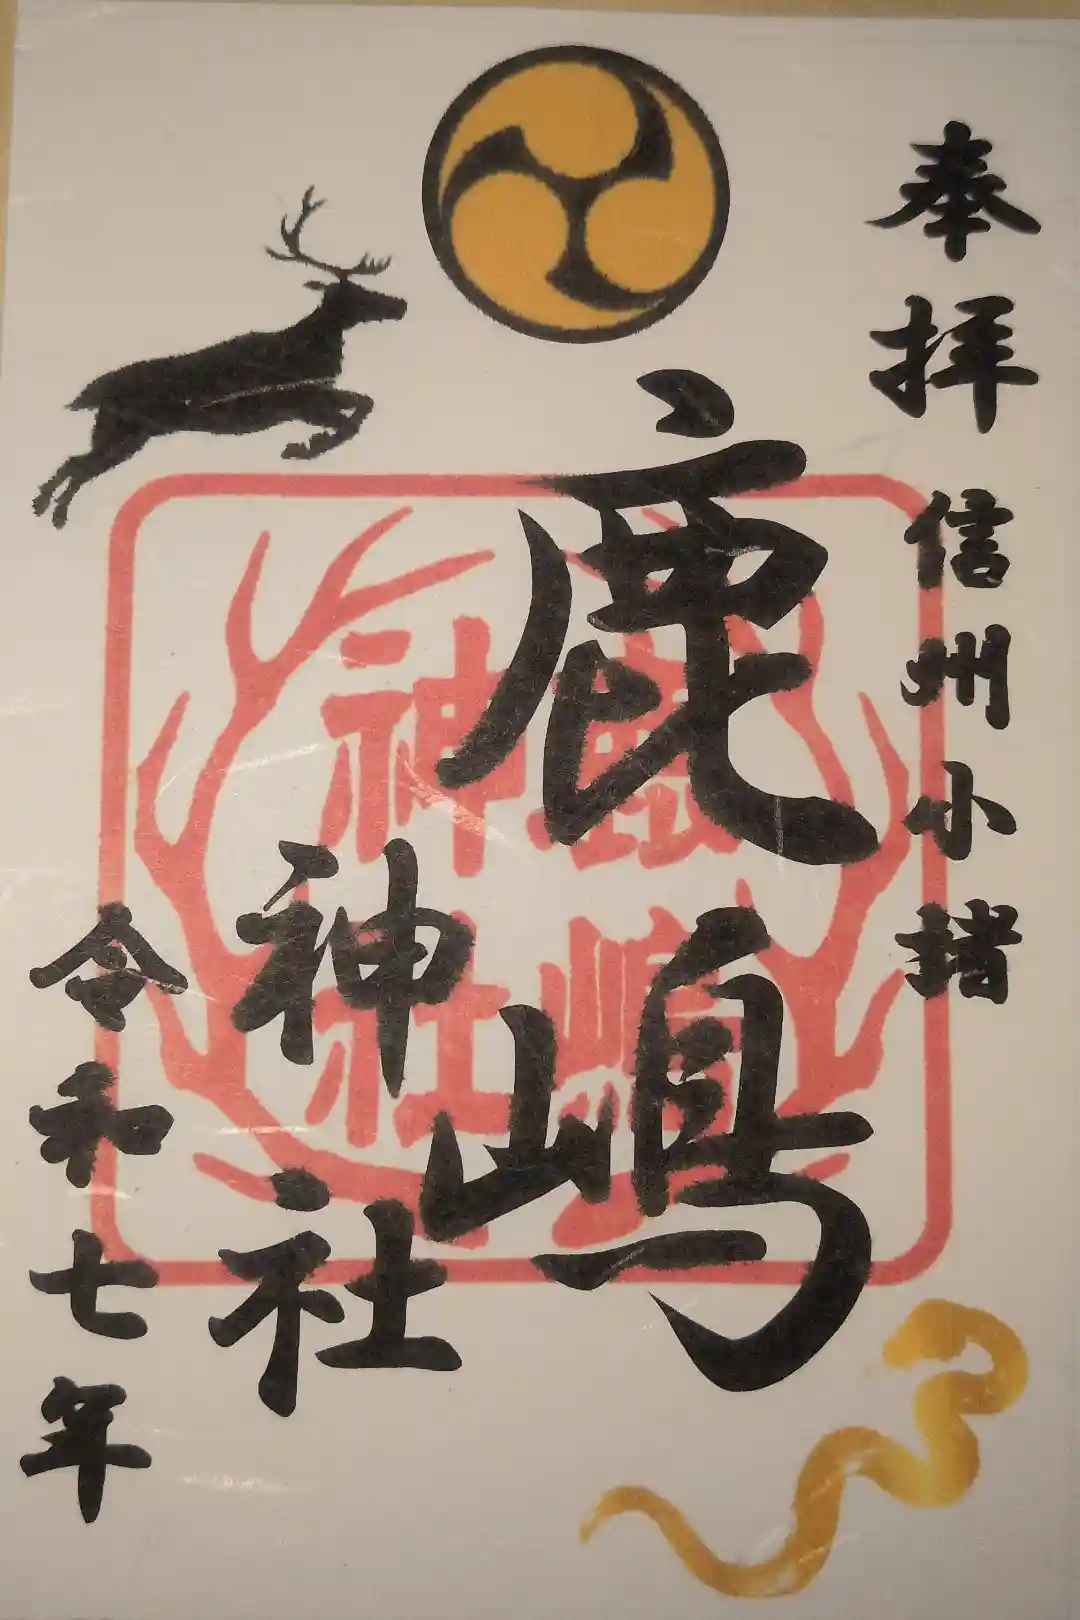 奉拝
信州小諸
鹿嶋
神社
令和七年
鹿嶋
神社